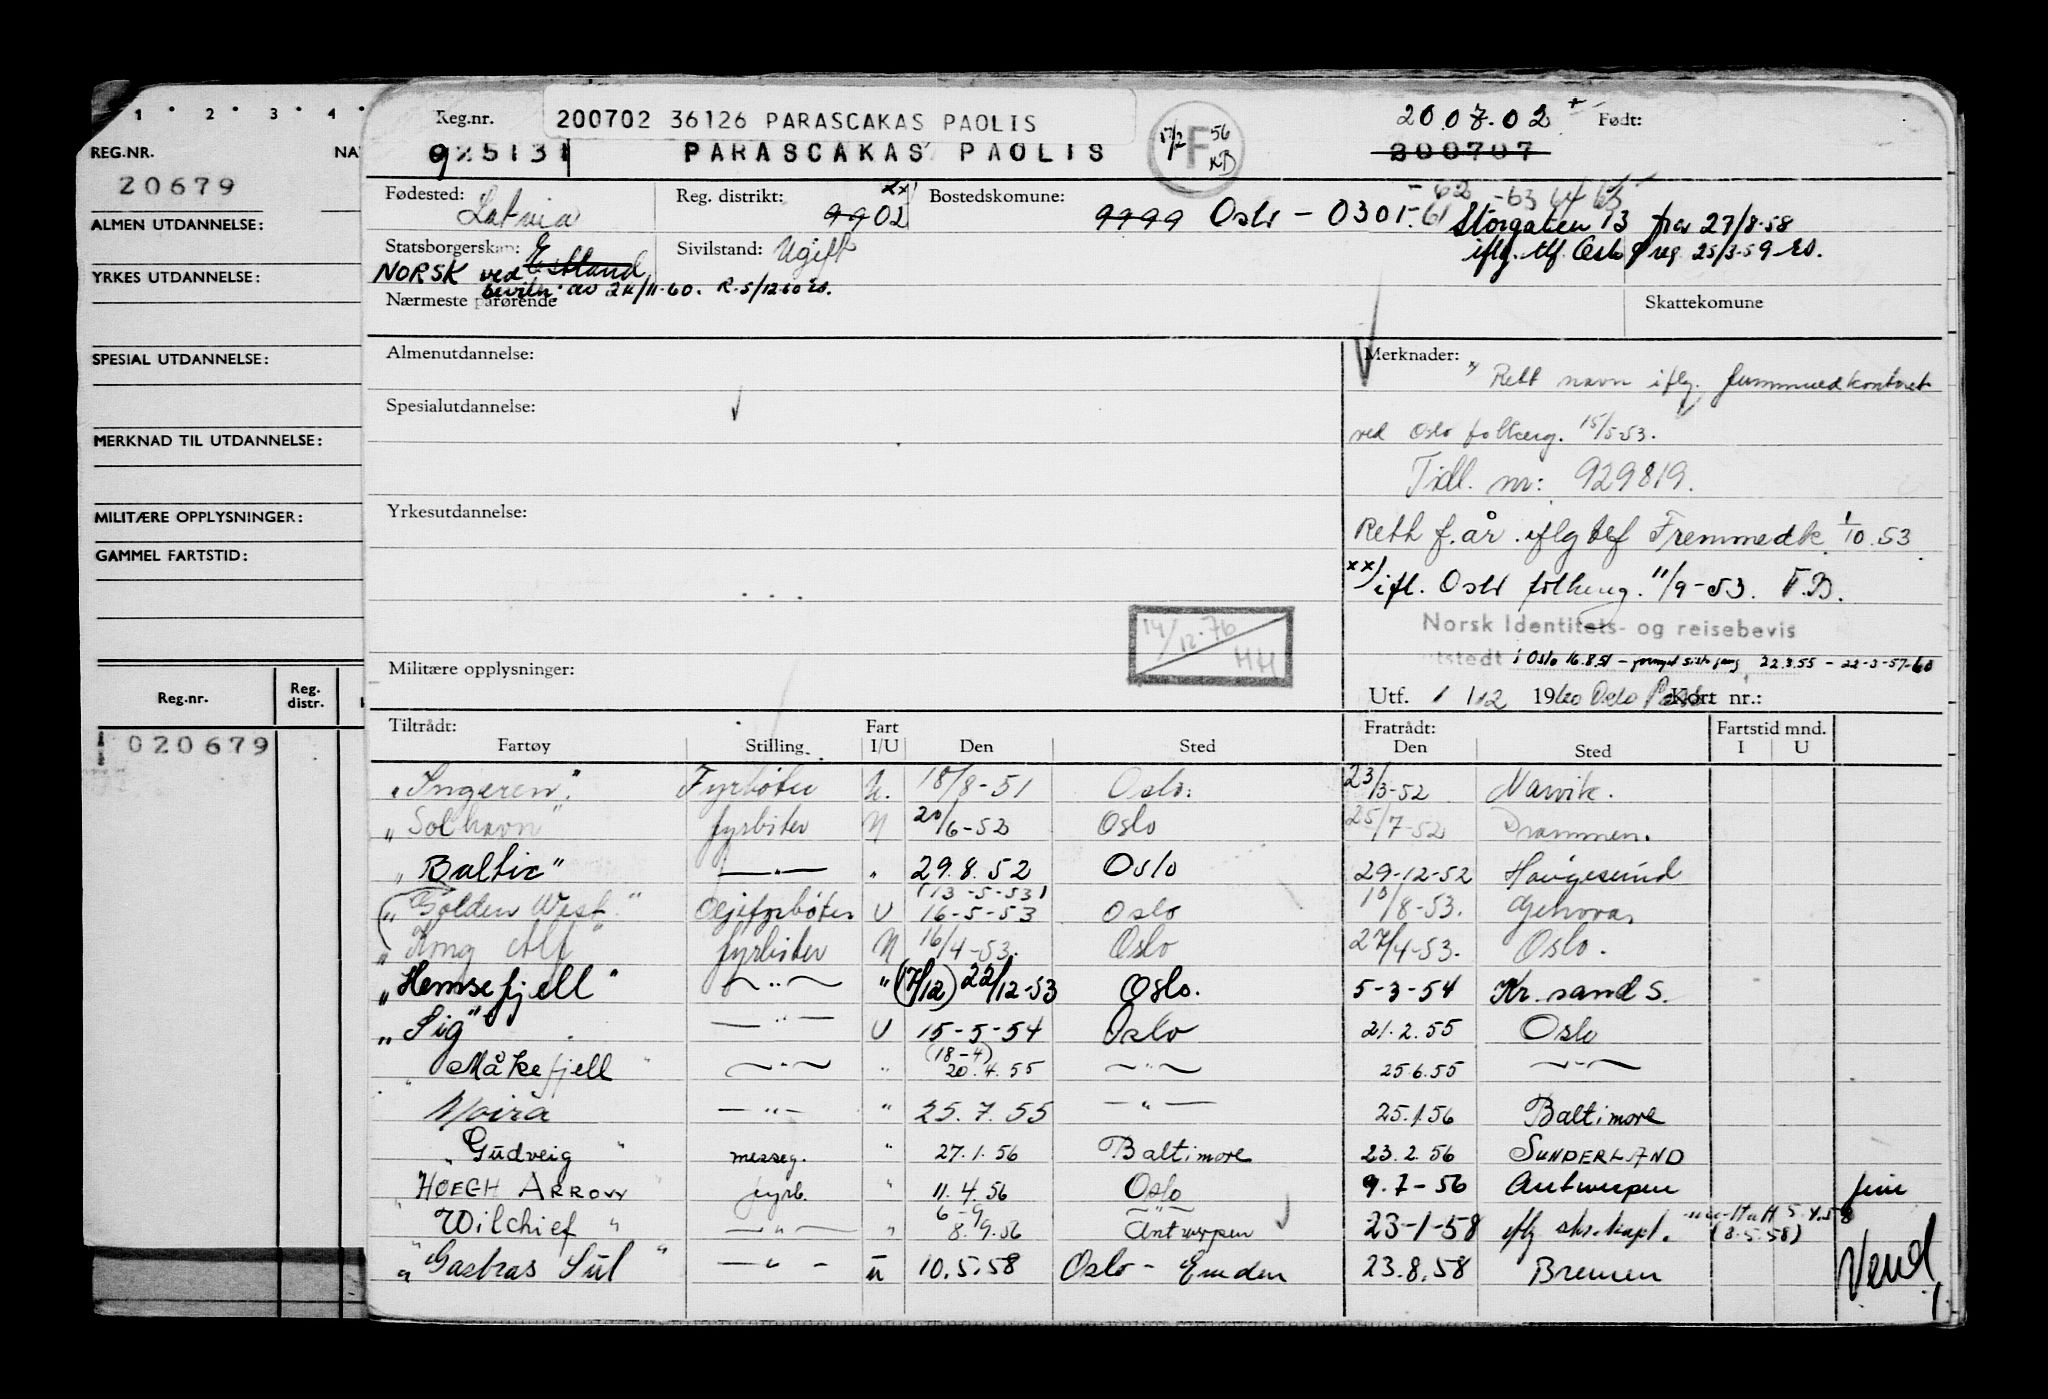 1 • 2 • 3 • 4 •
REG.NR. NA
20679
ALMEN UTDANNELSE:
YRKES UTDANNELSE:
SPESIAL UTDANNELSE:
MERKNAD TIL UTDANNELSE:
MILITÆRE OPPLYSNINGER:
GAMMEL FARTSTID:
Reg.nr. Reg. distr.
020679
Reg.nr. 200702 36126 PARASCAKAS PAOLIS
925131 PARASCAKAS PAOLIS
17/2 F 56 KB
20.07.02 x Født:
200707
Fødested: Latvia Reg. distrikt: 9902 Bostedskomune: 9999 Oslo - 0301-61 -62 -63 64 65
Storgaten 13 fra 27/8-58
iflg. tlf. Oslo f.reg. 25/3-59 es.
Statsborgerskap: Estland Sivilstand: Ugift
NORSK ved
beviln. av 24/11-60. R. 5/12 60 es.
Nærmeste pårørende Skattekomune
Almenutdannelse:
Spesialutdannelse:
Yrkesutdannelse:
Militære opplysninger:
14/12-76
HH
Merknader:
x/ Rett navn iflg. fremmedkontoret
ved Oslo folkereg. 15/5-53.
Tidl. nr: 929819.
Rett f.år iflg tlf Fremmedk. 1/10.53
xx/ ifl. Oslo folkereg. 11/9-53. F.B.
Norsk Identitets- og reisebevis
utstedt i Oslo 16.8.51 - fornyet siste gang 22.3.55 - 22-3-57-60
Utf. 1/12 1960 Oslo Kort nr.:
Tiltrådt: Fart Fratrådt: Fartstid mnd.
Fartøy Stilling I/U Den Sted Den Sted I U
"Ingeren" Fyrbøter U. 18/8-51 Oslo. 23/3-52 Narvik.
"Solhavn" fyrbøter N 20/6-52 Oslo 25/7-52 Drammen.
"Baltic" — " — " 29.8.52 Oslo 29-12-52 Haugesund
(13-5-53)
"Golden West" Oljefyrbøter U 16-5-53 Oslo 10/8-53. Genova
"Kong Alf" fyrbøter N 16/4-53. Oslo 27/4-53. Oslo.
"Hemsefjell" — " — " (17/12) 22/12-53 Oslo. 5-3-54 Kr.sand S.
"Sig" — " — U 15-5-54 Oslo 21.2.55 Oslo
(18-4)
"Måkefjell" — " — " 20.4.55 — " — 25.6.55 — " —
Moira — " — " 25.7.55 — " — 25.1.56 Baltimore
"Gudveig" messeg. " 27.1.56 Baltimore 23.2.56 SUNDERLAND
"HOEGH ARROW" fyrb. " 11.4.56 Oslo 9.7-56 Antwerpen
6-9 — " —
Wilchief " — " — " 8.9.56 Antwerpen 23-1-58 iflg skr. kapt. (8.5.58)
"Gasbras Sul" — " — U 10.5.58 Oslo - Emden 23.8.58 Bremen
Vend